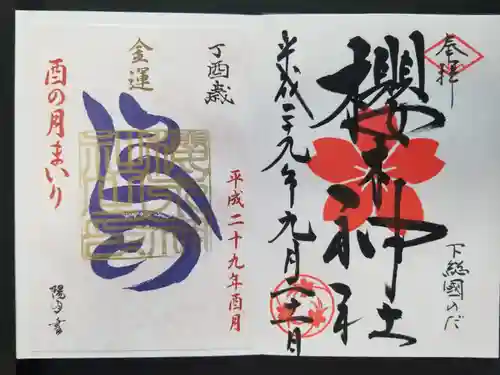 奉拝
櫻木神社
下総國のだ
平成二十九年九月二十二日
丁酉歳
金運
酉の月まいり
平成二十九年酉月